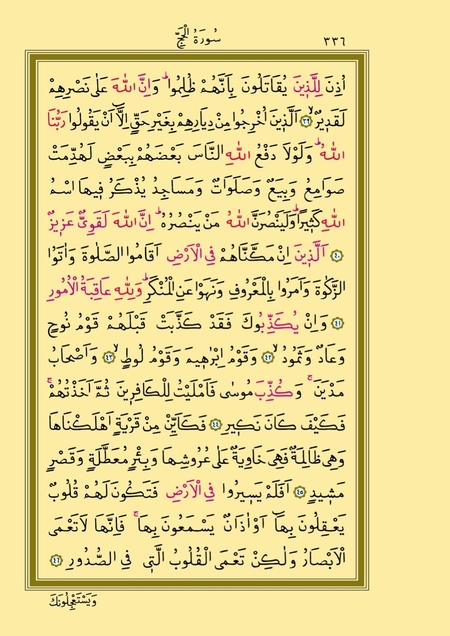 ٣٣٦ سُورَةُ الْحَجِّ
اُذِنَ لِلَّذ۪ينَ يُقَاتَلُونَ بِاَنَّهُمْ ظُلِمُواۜ وَاِنَّ اللّٰهَ عَلٰى نَصْرِهِمْ
لَقَد۪يرٌۙ ﴿٣٩﴾ اَلَّذ۪ينَ اُخْرِجُوا مِنْ دِيَارِهِمْ بِغَيْرِ حَقٍّ اِلَّٓا اَنْ يَقُولُوا رَبُّنَا
اللّٰهُۜ وَلَوْلَا دَفْعُ اللّٰهِ النَّاسَ بَعْضَهُمْ بِبَعْضٍ لَهُدِّمَتْ
صَوَامِعُ وَبِيَعٌ وَصَلَوَاتٌ وَمَسَاجِدُ يُذْكَرُ ف۪يهَا اسْمُ
اللّٰهِ كَث۪يرًاۜ وَلَيَنْصُرَنَّ اللّٰهُ مَنْ يَنْصُرُهُۜ اِنَّ اللّٰهَ لَقَوِيٌّ عَز۪يزٌ
﴿٤٠﴾ اَلَّذ۪ينَ اِنْ مَكَّنَّاهُمْ فِي الْاَرْضِ اَقَامُوا الصَّلٰوةَ وَاٰتَوُا
الزَّكٰوةَ وَاَمَرُوا بِالْمَعْرُوفِ وَنَهَوْا عَنِ الْمُنْكَرِۜ وَلِلّٰهِ عَاقِبَةُ الْاُمُورِ
﴿٤١﴾ وَاِنْ يُكَذِّبُوكَ فَقَدْ كَذَّبَتْ قَبْلَهُمْ قَوْمُ نُوحٍ
وَعَادٌ وَثَمُودُۙ ﴿٤٢﴾ وَقَوْمُ اِبْرٰه۪يمَ وَقَوْمُ لُوطٍۙ ﴿٤٣﴾ وَاَصْحَابُ
مَدْيَنَۚ وَكُذِّبَ مُوسٰى فَاَمْلَيْتُ لِلْكَافِر۪ينَ ثُمَّ اَخَذْتُهُمْۚ
فَكَيْفَ كَانَ نَك۪يرِ ﴿٤٤﴾ فَكَاَيِّنْ مِنْ قَرْيَةٍ اَهْلَكْنَاهَا
وَهِيَ ظَالِمَةٌ فَهِيَ خَاوِيَةٌ عَلٰى عُرُوشِهَا وَبِئْرٍ مُعَطَّلَةٍ وَقَصْرٍ
مَش۪يدٍ ﴿٤٥﴾ اَفَلَمْ يَس۪يرُوا فِي الْاَرْضِ فَتَكُونَ لَهُمْ قُلُوبٌ
يَعْقِلُونَ بِهَٓا اَوْ اٰذَانٌ يَسْمَعُونَ بِهَاۚ فَاِنَّهَا لَا تَعْمَى
الْاَبْصَارُ وَلٰكِنْ تَعْمَى الْقُلُوبُ الَّت۪ي فِي الصُّدُورِ ﴿٤٦﴾
وَيَسْتَعْجِلُونَكَ